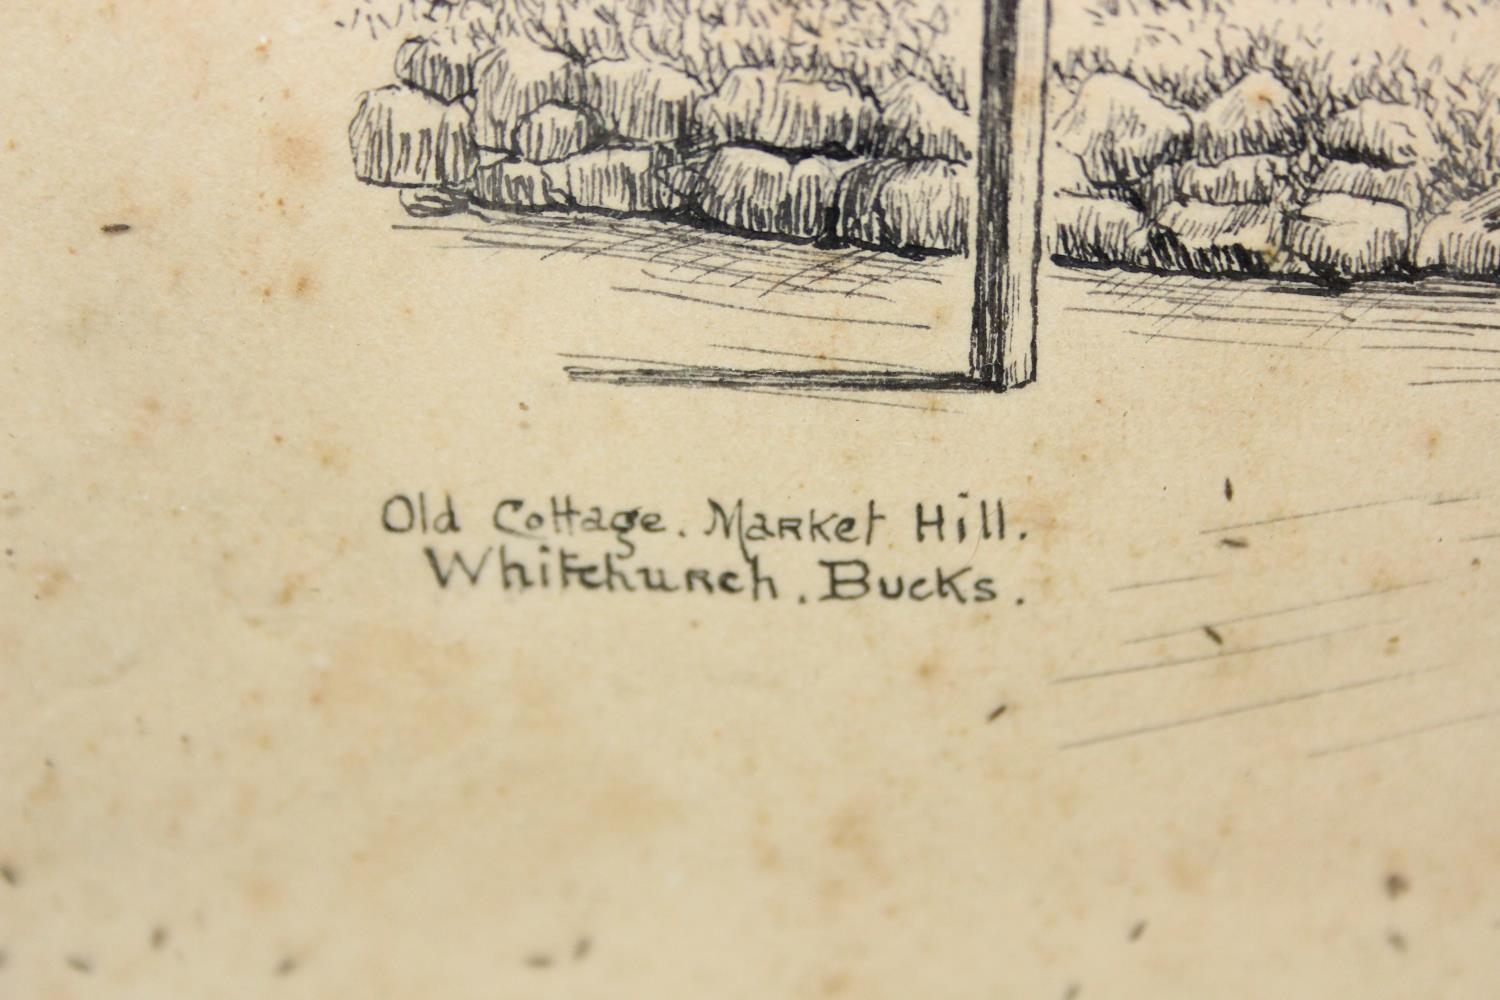 Old Cottage. Market Hill.
Whitchurch. Bucks.